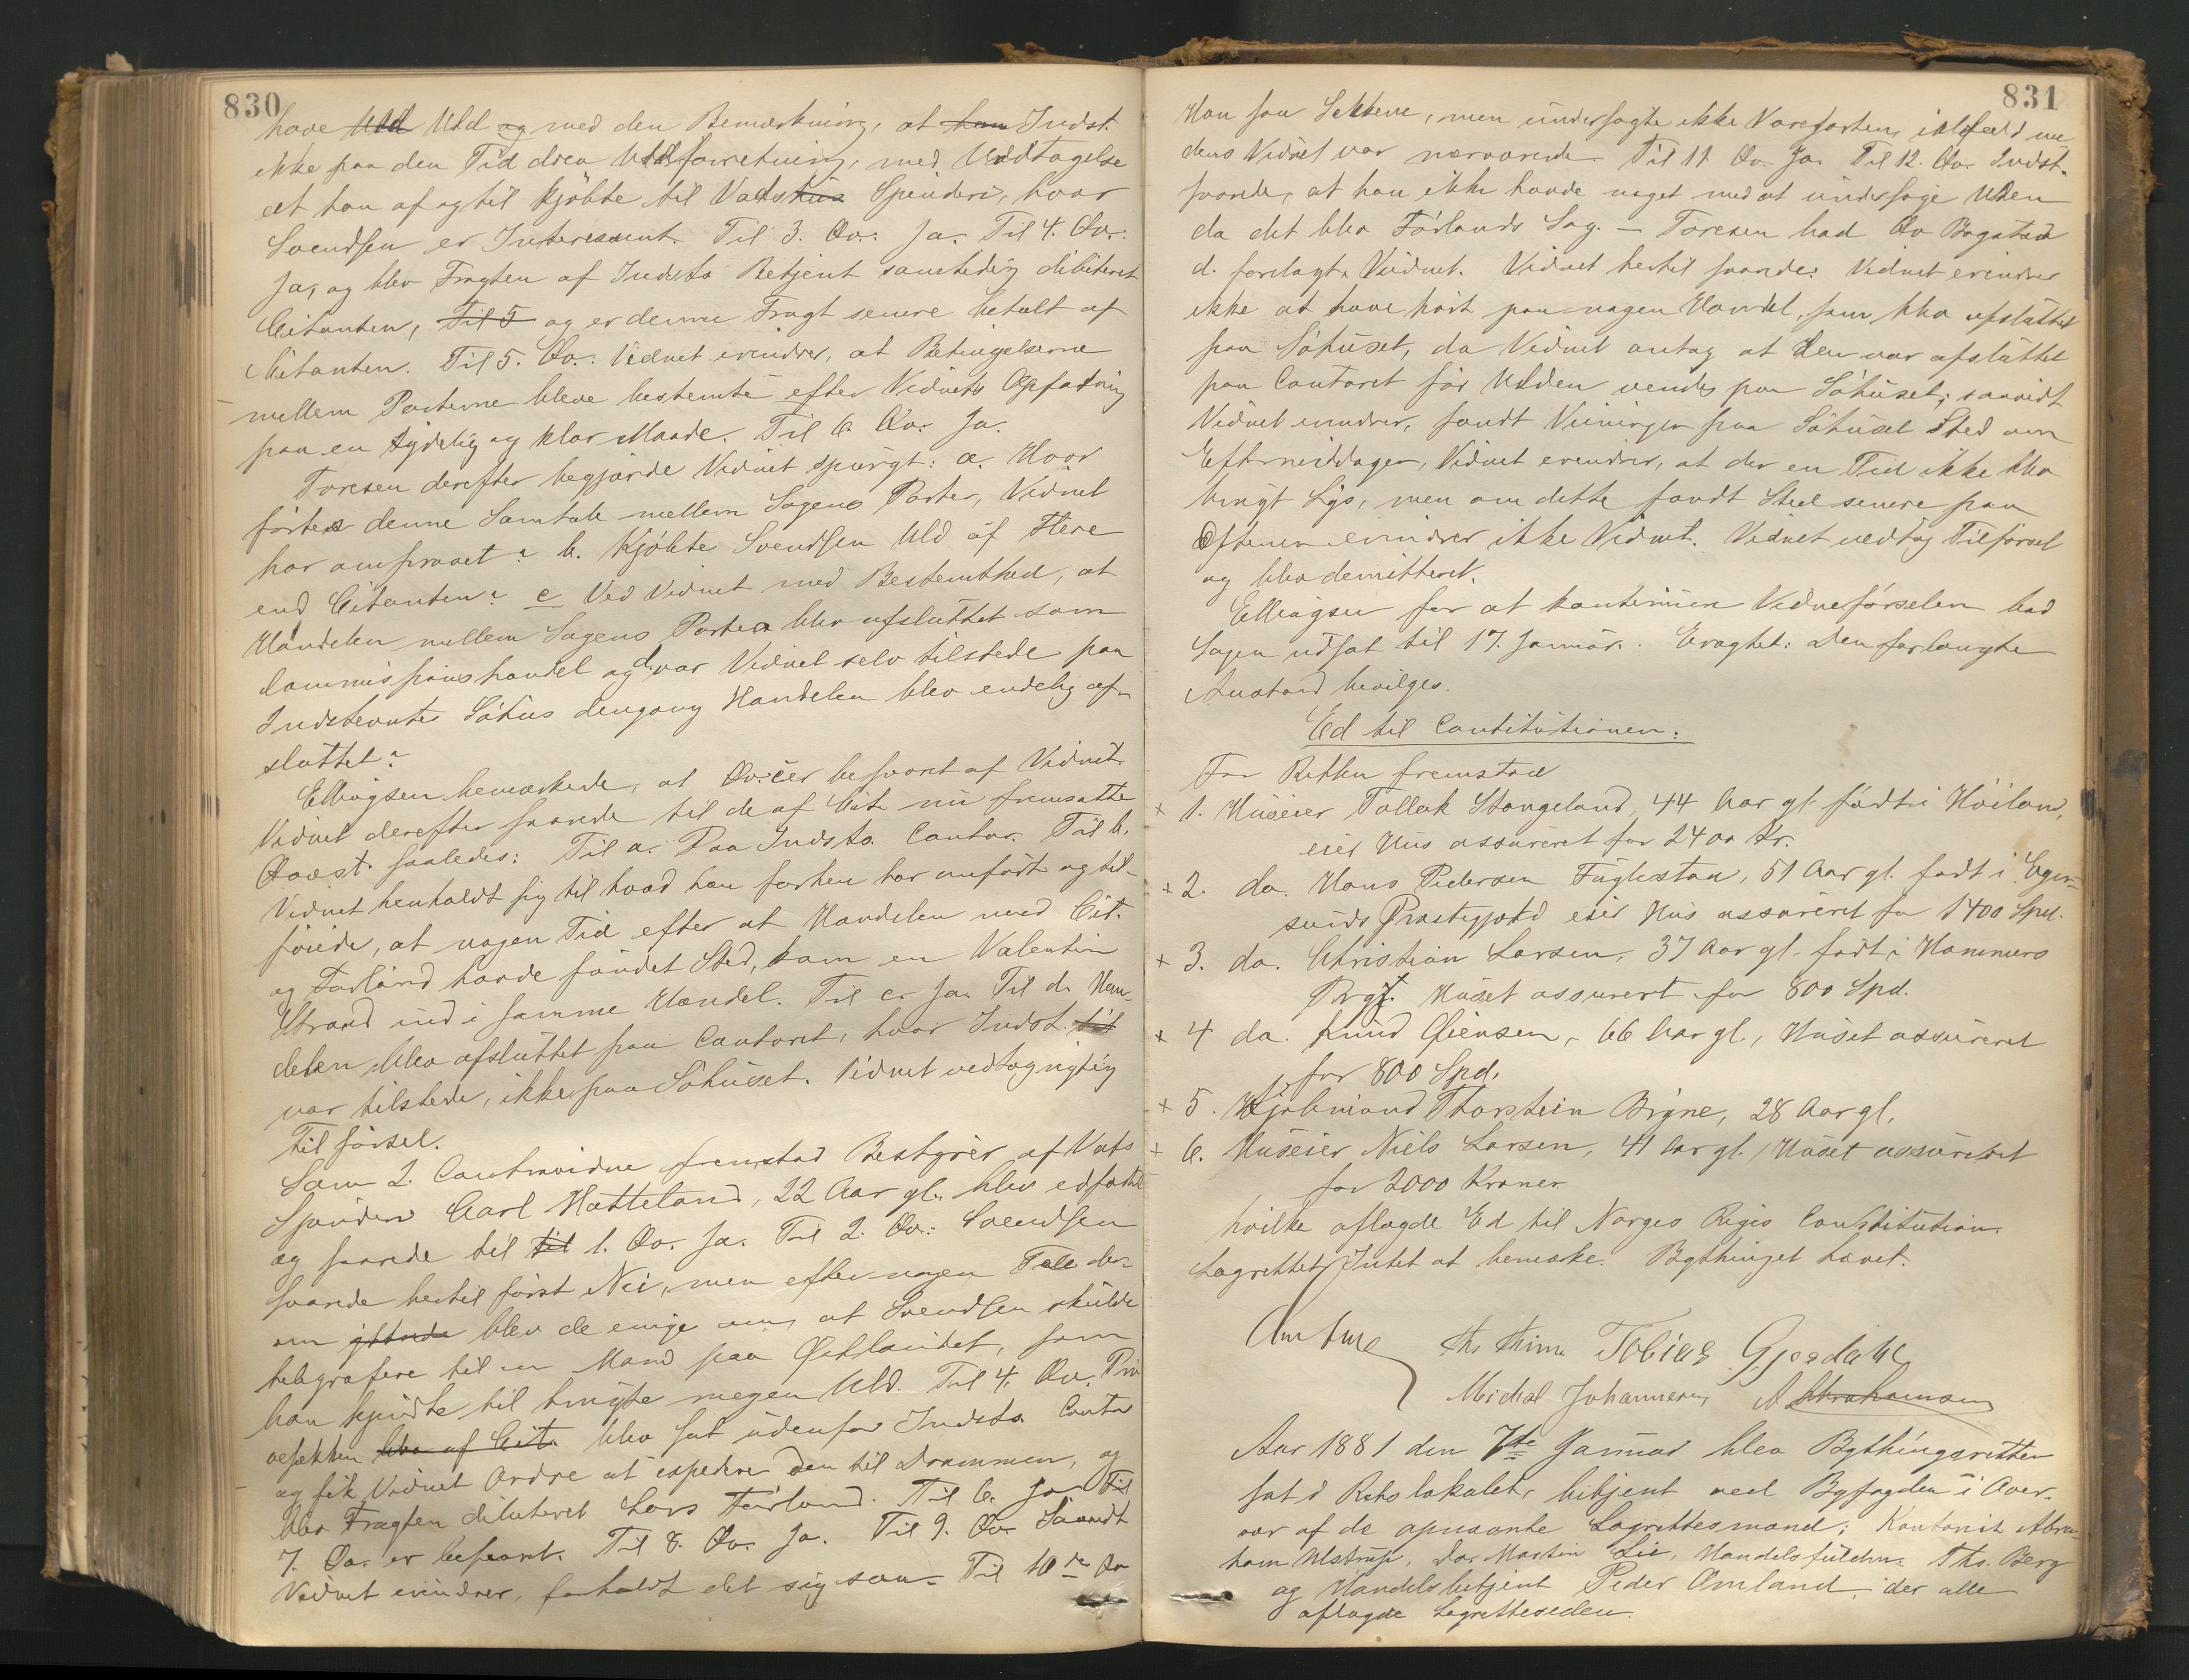 830
have Uld Uld og med den Bemærkning, at han Indst.
ikke paa den Tid drev Uldforretning, med Undtagelse
at han af og til kjöbte til Vatshus Spinderi, hvor
Svendsen er Interessent. Til 3. Qv.: Ja. Til 4. Qv.:
Ja, og blev Fragten af Indsts Betjent samtidig debiteret
Citanten, Til 5 og er denne Fragt senere betalt af
Citanten. Til 5. Qv.: Vidnet erindrer, at Betingelserne
mellem Parterne bleve bestemte efter Vidnets Opfatning
paa en tydelig og klar Maade. Til 6. Qv. Ja.
Toresen derefter begjærde Vidnet spurgt: a. Hvor
førtes denne Samtale mellem Sagens Parter, Vidnet
har omprovet? b. Kjöbte Svendsen Uld af Flere
end Citanten? c Ved Vidnet med Bestemthed, at
Handelen mellem Sagens Parter blev afsluttet som
Commissionshandel og d. var Vidnet selv tilstede paa
Indstevntes Söhus dengang Handelen blev endelig af-
sluttet?
Ellingsen bemærkede, at Qv. c er besvaret af Vidnet.
Vidnet derefter svarede til de af Cit. nu fremsatte
Qvæst. saaledes: Til a. Paa Indsts. Contor. Til b.
Vidnet henholdt sig til hvad han forhen har anført og til-
föiede, at nogen Tid efter at Handelen med Cit.
og Førland havde fundet Sted, kom en Valentin
Strand ind i samme Handel. Til c. Ja. Til d. Han-
delen blev afsluttet paa Contoret, hvor Indst. til
var tilstede, ikke paa Söhuset. Vidnet vedtog rigtig
Tilförsel.
Som 2. Contravidne fremstod Bestyrer af Vats
Spinderi Carl Hatteland, 22 Aar gl. blev edfæstet
og svarede til til 1. Qv. Ja. Til 2. Qv.: Svendsen
svarede hertil først Nei, men efter nogen Tale der-
om blev de enige om, at Svendsen skulde
telegrafere til en Mand paa Østlandet, som
han kjendte til brugte megen Uld. Til 4. Qv. Prö-
vesækken blev af Cit. blev sat udenfor Indsts Contor
og fik Vidnet Ordre at expedere den til Drammen, og
blev Fragten debiteret Lars Førland. Til 6. Ja Til
7. Qv. er besvaret. Til 8. Qv. Ja. Til 9. Qv. Saavidt
Vidnet erindrer, forholdt det sig saa. Til 10de Qv
831
Han saa Sækkene, men undersøgte ikke Varesorten, ialfald me-
dens Vidnet var nærværende. Til 11 Qv. Ja. Til 12. Qv. Indst.
svarede, at han ikke havde noget med at undersøge Ulden
da det blev Førlands Sag. — Toresen bad Qv Bogstav
d. forelagt Vidnet. Vidnet hertil svarede: Vidnet erindrer
ikke at have hørt paa nogen Handel, som blev afsluttet
paa Söhuset, da Vidnet antog at den var afsluttet
paa Contoret för Ulden veiedes paa Söhuset; saavidt
Vidnet erindrer, fandt Veiningen paa Söhuset Sted om
Eftermiddagen, Vidnet erindrer, at der en Tid ikke blev
brugt Lys, men om dette fandt Sted senere paa
Aftenen erindrer ikke Vidnet. Vidnet vedtog Tilförsel
og blev demitteret.
Ellingsen for at kontinuere Vidneförselen bad
Sagen udsat til 17. Januar. Eragtet: Den forlangte
Anstand bevilges.
Ed til Constitutionen.
For Retten fremstod
x 1. Huseier Tollak Stangeland, 44 Aar gl. födt i Höiland,
eier Hus assureret for 2400 Kr.
x 2. do. Hans Pedersen Fuglestad, 51 Aar gl. födt i Eger-
sunds Præstegjæld eier Hus assureret for 1400 Spd.
x 3. do. Christian Larsen, 37 Aar gl. födt i Hammers
Prgj. Huset assureret for 800 Spd.
x 4 do. Knud Eiensen, 66 Aar gl., Huset assureret
for 800 Spd.
x 5. Kjöbmand Thorstein Bryne, 28 Aar gl.
x 6. Huseier Niels Larsen, 41 Aar gl. Huset assureret
for 2000 Kroner
hvilke aflagde Ed til Norges Riges Constitution.
Lagrettet Intet at bemærke. Bythinget hævet.
Ths Thime Tobias Gjesdahl
Michal Johannesen, A Abrahamsen
Aar 1881 den 7de Januar blev Bythingsretten
sat i Retslokalet, betjent ved Byfogden i Over-
vær af de opnævnte Lagrettesmænd; Kontorist Abra-
ham Ulstrup, do. Martin Lie, Handelsfuldm. Ths. Berg
og Handelsbetjent Peder Omland, der alle
aflagde Lagretteseden.